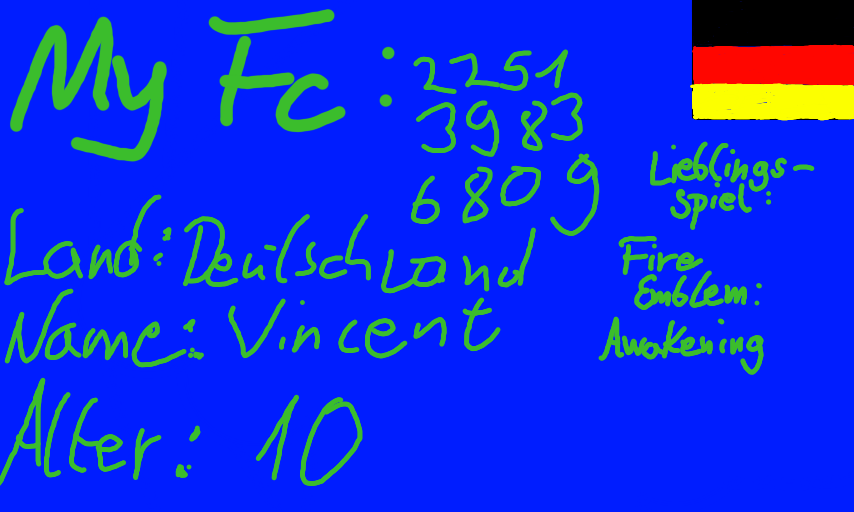 My Fc: 2251
3983
6809
Land: Deutschland
Name: Vincent
Alter: 10
Lieblings-
spiel:
Fire
Emblem:
Awakening